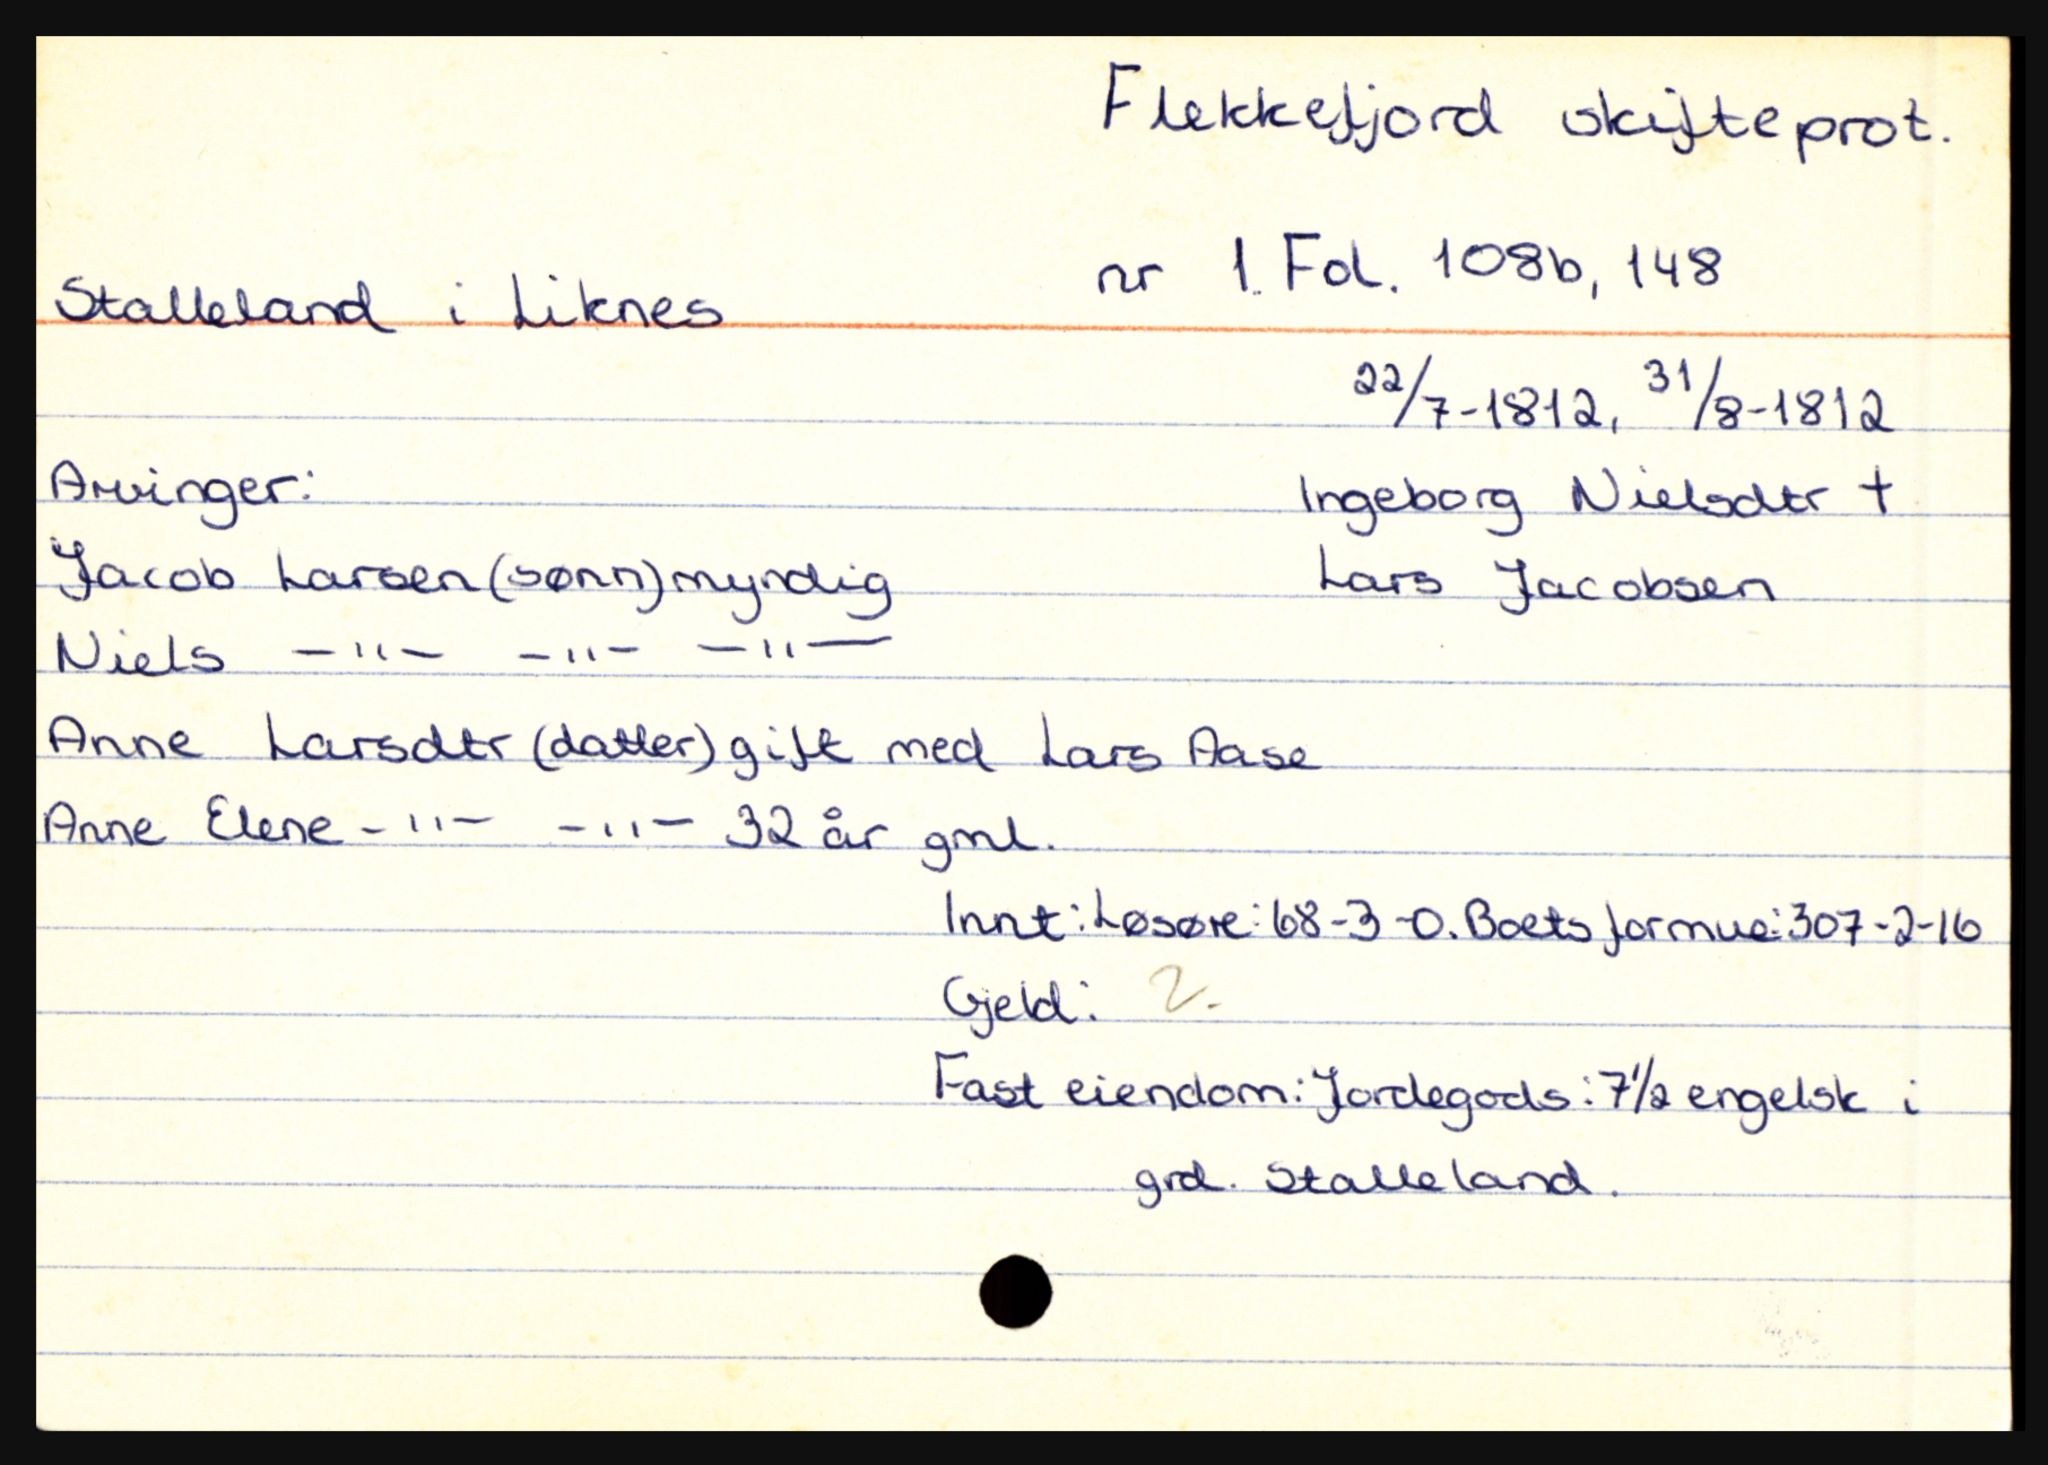 Flekkefjord skifteprot.
nr 1. Fol. 108b, 148
Stalleland i Liknes
22/7-1812, 31/8-1812
Arvinger:
Ingeborg Nielsdtr †
Jacob Larsen (sønn) myndig
Lars Jacobsen
Niels -"- -"- -"-
Anne Larsdtr (datter) gift med Lars Aase
Anne Elene -"- -"- 32 år gml.
Innt: Løsøre: 68-3-0. Boets formue: 307-2-16
Gjeld: 2.
Fast eiendom: Jordegods: 7 1/2 engelsk i
grd. Stalleland.